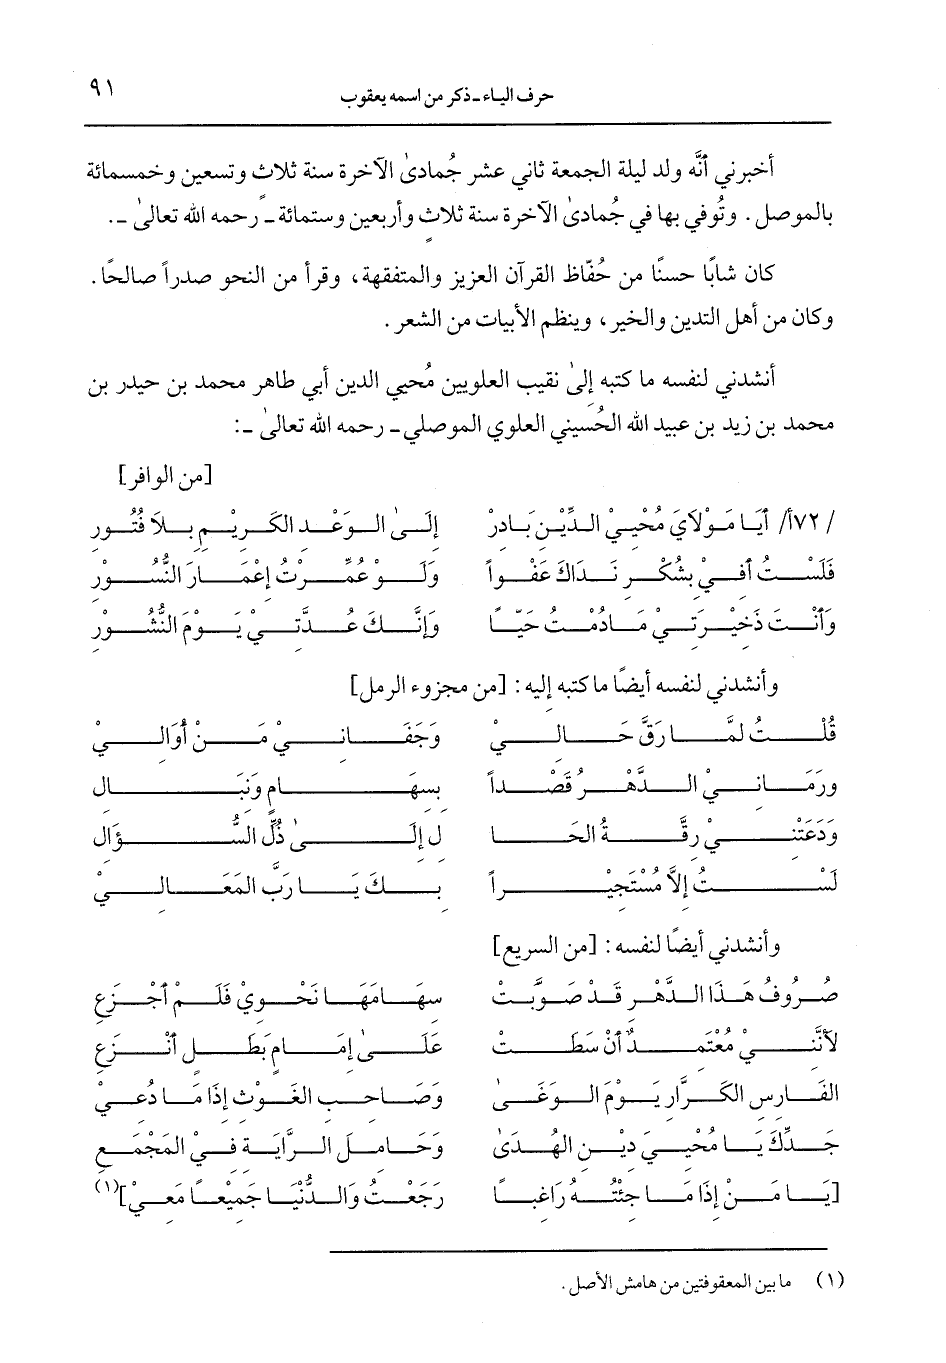 حرف الياء ـ ذكر من اسمه يعقوب ٩١
أخبرني أنَّه ولد ليلة الجمعة ثاني عشر جُمادىٰ الآخرة سنة ثلاث وتسعين وخمسمائة
بالموصل. وتُوفي بها في جُمادىٰ الآخرة سنة ثلاث وأربعين وستمائةً ـ رحمه الله تعالىٰ ـ.
كان شابًا حسنًا من حُفّاظ القرآن العزيز والمتفقهة، وقرأ من النحو صدراً صالحًا.
وكان من أهل التدين والخير، وينظم الأبيات من الشعر.
أنشدني لنفسه ما كتبه إلىٰ نقيب العلويين مُحيي الدين أبي طاهر محمد بن حيدر بن
محمد بن زيد بن عبيد الله الحُسيني العلوي الموصلي ـ رحمه الله تعالىٰ ـ:
[من الوافر]
/ ٧٢أ/ أيَا مَوْلَايَ مُحْييْ الدِّيْنِ بَادرْ إلَىٰ الوَعْدِ الكَرِيْمِ بِلَا فُتُورِ
فَلَسْتُ أفيْ بشُكْرِ نَدَاكَ عَفْواً وَلَوْ عُمِّرْتُ إعْمَارَ النُّسُوْرِ
وَأنْتَ ذَخِيْرَتيْ مَادُمْتُ حَيّاً وَإنَّكَ عُدَّتيْ يَوْمَ النُّشُوْرِ
وأنشدني لنفسه أيضًا ما كتبه إليه: [من مجزوء الرمل]
قُلْتُ لمَّا رَقَّ حَاليْ وَجَفَانيْ مَنْ أوَاليْ
ورَمَانيْ الدَّهْرُ قَصْداً بسهَامٍ وَنبَالِ
وَدَعَتْنيْ رِقَّةُ الحَا لِ إلَىٰ ذُلِّ السُّؤَالِ
لَسْتُ إلاَّ مُسْتَجيْراً بكَ يَا رَبَّ المَعَاليْ
وأنشدني أيضًا لنفسه: [من السريع]
صُرُوفُ هَذَا الدَّهْرِ قَدْ صَوَّبَتْ سهَامَهَا نَحْويْ فَلَمْ أجْزَعِ
لأنَّنيْ مُعْتَمدٌ أنْ سَطَتْ عَلَىٰ إمَامٍ بَطَلٍ أنْزَعِ
الفَارسِ الكَرَّارِ يَوْمَ الوَغَىٰ وَصَاحبِ الغَوْث إذَا مَا دُعيْ
جَدِّكَ يَا مُحْييَ ديْنِ الهُدَىٰ وَحَاملِ الرَّايَة فيْ المَجْمَعِ
[يَا مَنْ إذَا مَا جئْتُهُ رَاغبًا رَجَعْتُ وَالدُّنْيَا جَميْعًا مَعيْ](١)
(١) ما بين المعقوفتين من هامش الأصل.